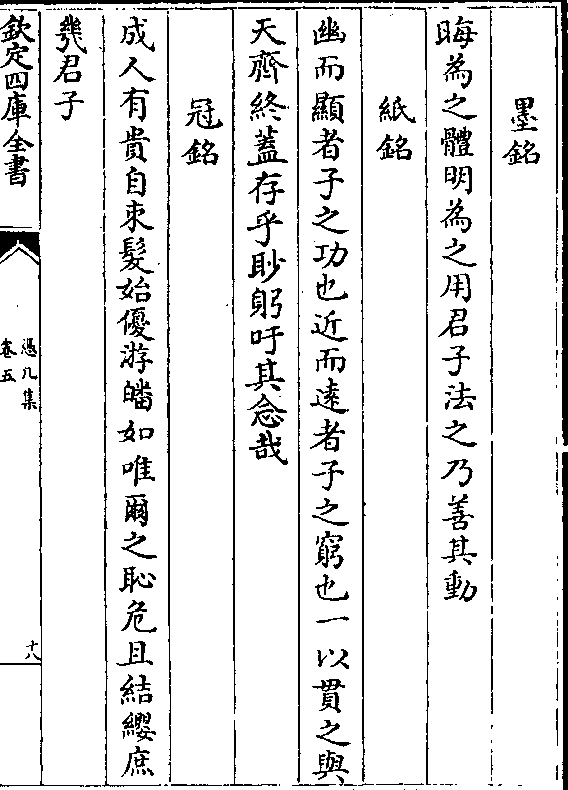 墨銘
晦為之體明為之用君子法之乃善其動
紙銘
幽而顯者子之功也近而遠者子之窮也一以貫之與
天齊終蓋存乎眇躬吁其念哉
冠銘
成人有貴自束髮始優游皤如唯爾之恥危且結纓庶
㡬君子
欽定四庫全書
憑几集
卷五
十八